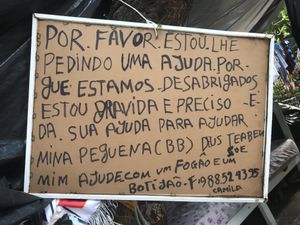 POR. FAVOR. ESTOU. LHE
PEDINDO UMA AJUDA. POR-
QUE ESTAMOS. DESABRIGADOS
ESTOU GRAVIDA E PRECISO - E-
DA. SUA AJUDA PARA AJUDAR
MINA PEGUENA (BB) DUS TEABEM
SOE
MIM AJUDE COM UM FOGÃO E UM
BOTIJÃO.
CAMILA